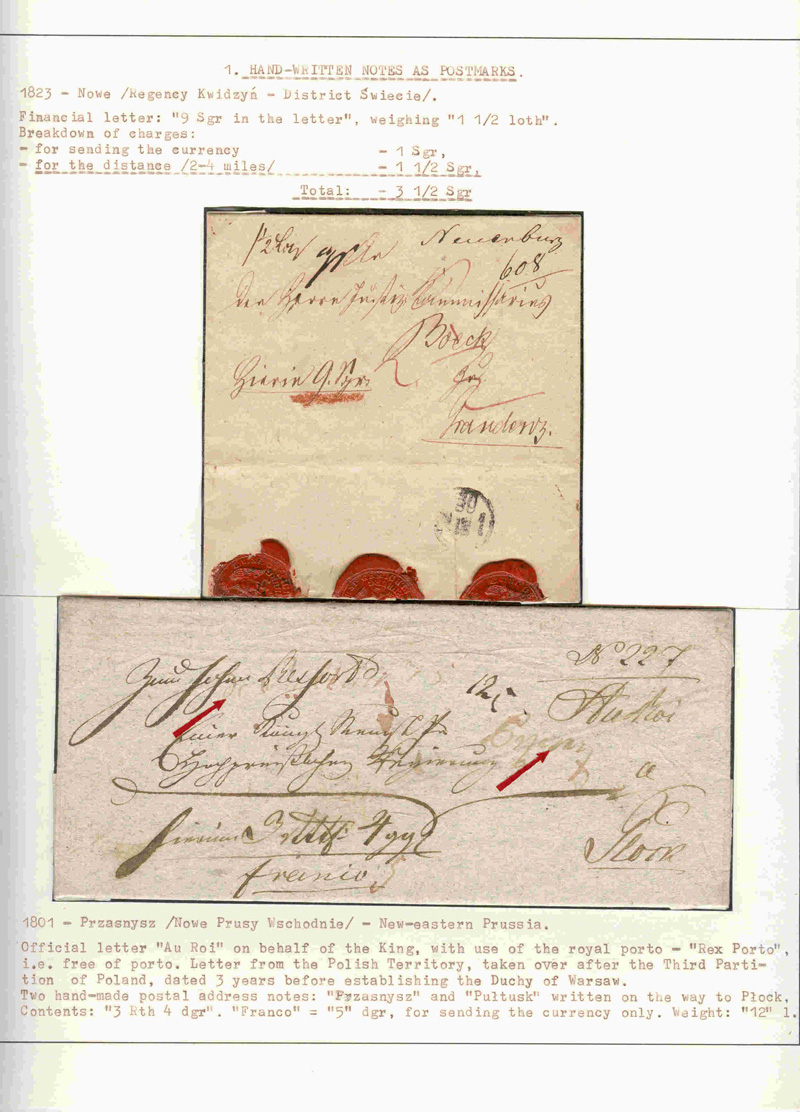 1. HAND-WRITTEN NOTES AS POSTMARKS.
1823 - Nowe /Regency Kwidzyń - District Świecie/.
Financial letter: "9 Sgr in the letter", weighing "1 1/2 loth".
Breakdown of charges:
- for sending the currency - 1 Sgr,
- for the distance /2-4 miles/ - 1 1/2 Sgr,
Total: - 3 1/2 Sgr
Neuenburg
608
Den Herrn Justiz Commissarius
Boeck
Hierin 9. Sgr.
Graudenz.
No 227
Au Roi
12
a
Plock
franco
1801 - Przasnysz /Nowe Prusy Wschodnie/ - New-eastern Prussia.
Official letter "Au Roi" on behalf of the King, with use of the royal porto - "Rex Porto",
i.e. free of porto. Letter from the Polish Territory, taken over after the Third Parti-
tion of Poland, dated 3 years before establishing the Duchy of Warsaw.
Two hand-made postal address notes: "Przasnysz" and "Pultusk" written on the way to Plock,
Contents: "3 Rth 4 dgr". "Franco" = "5" dgr, for sending the currency only. Weight: "12" l.